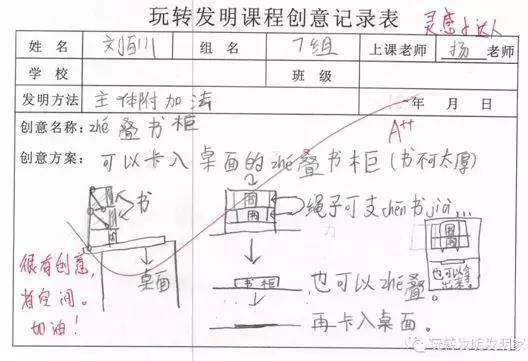 玩转发明课程创意记录表
灵感小达人
姓 名 刘百川 组 名 7组 上课老师 扬 老师
学 校 班 级
发明方法 主体附加法 年 月 日
A++
创意名称: zhé叠书柜
创意方案: 可以卡入桌面的zhé叠书柜(书不太厚)
书
桌面
绳子可支chen书jià...
书柜
也可以zhé叠。
再卡入桌面。
也可以拿
出来。
很有创意,
省空间。
加油!
玩转发明发明家